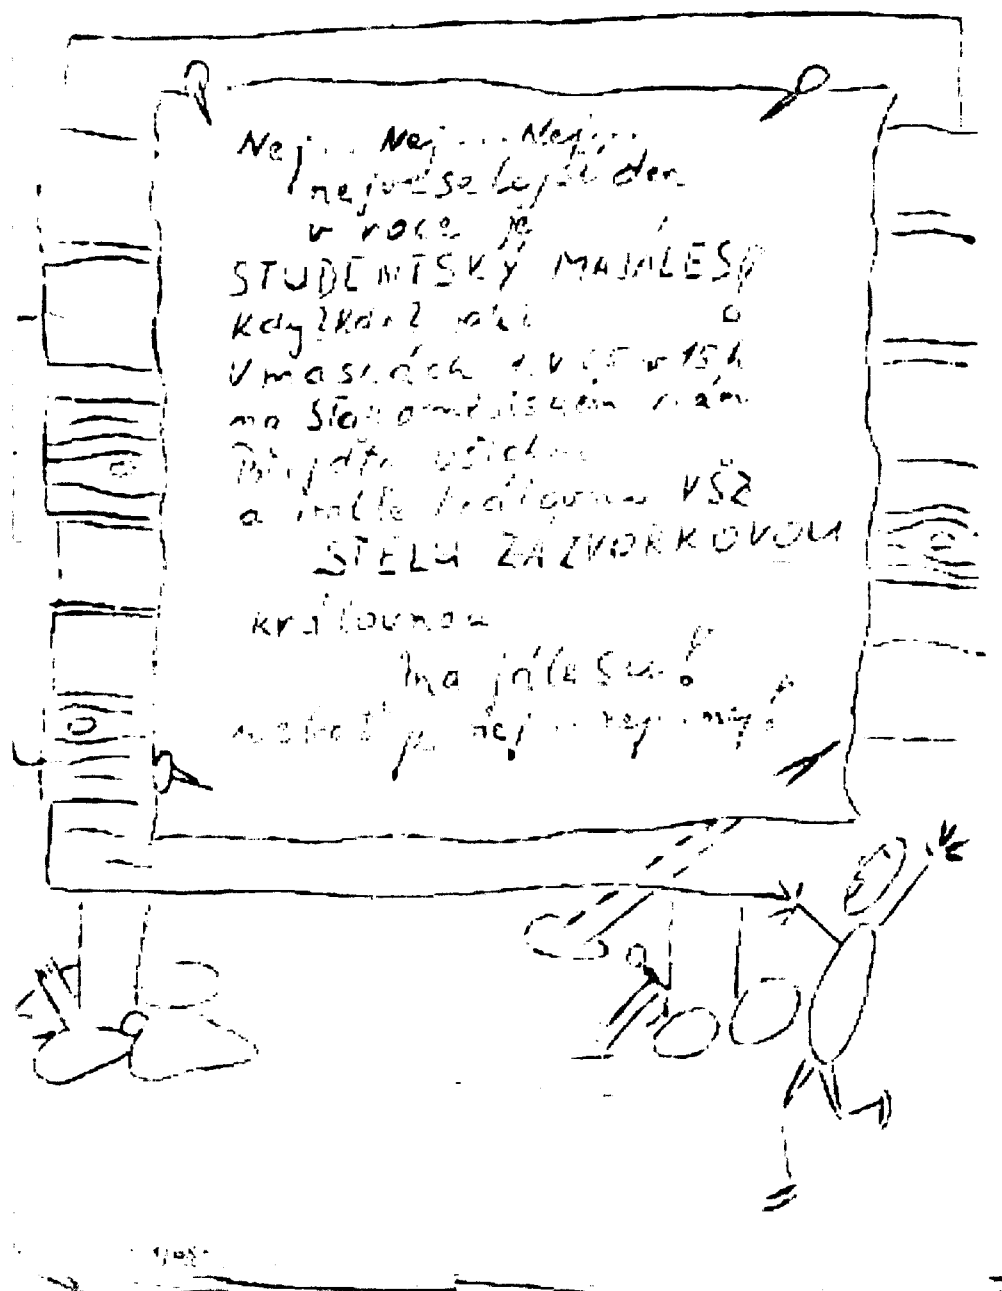 Nej... Nej... Nej...
nejveselejší den
v roce je
STUDENTSKÝ MAJÁLES
v maskách v 15h
na Staroměstském nám
Přijďte všichni
a volte královnu VŠŽ
STELU ZÁZVORKOVOU
královnou
majálesu!
je nej... nej... nej!